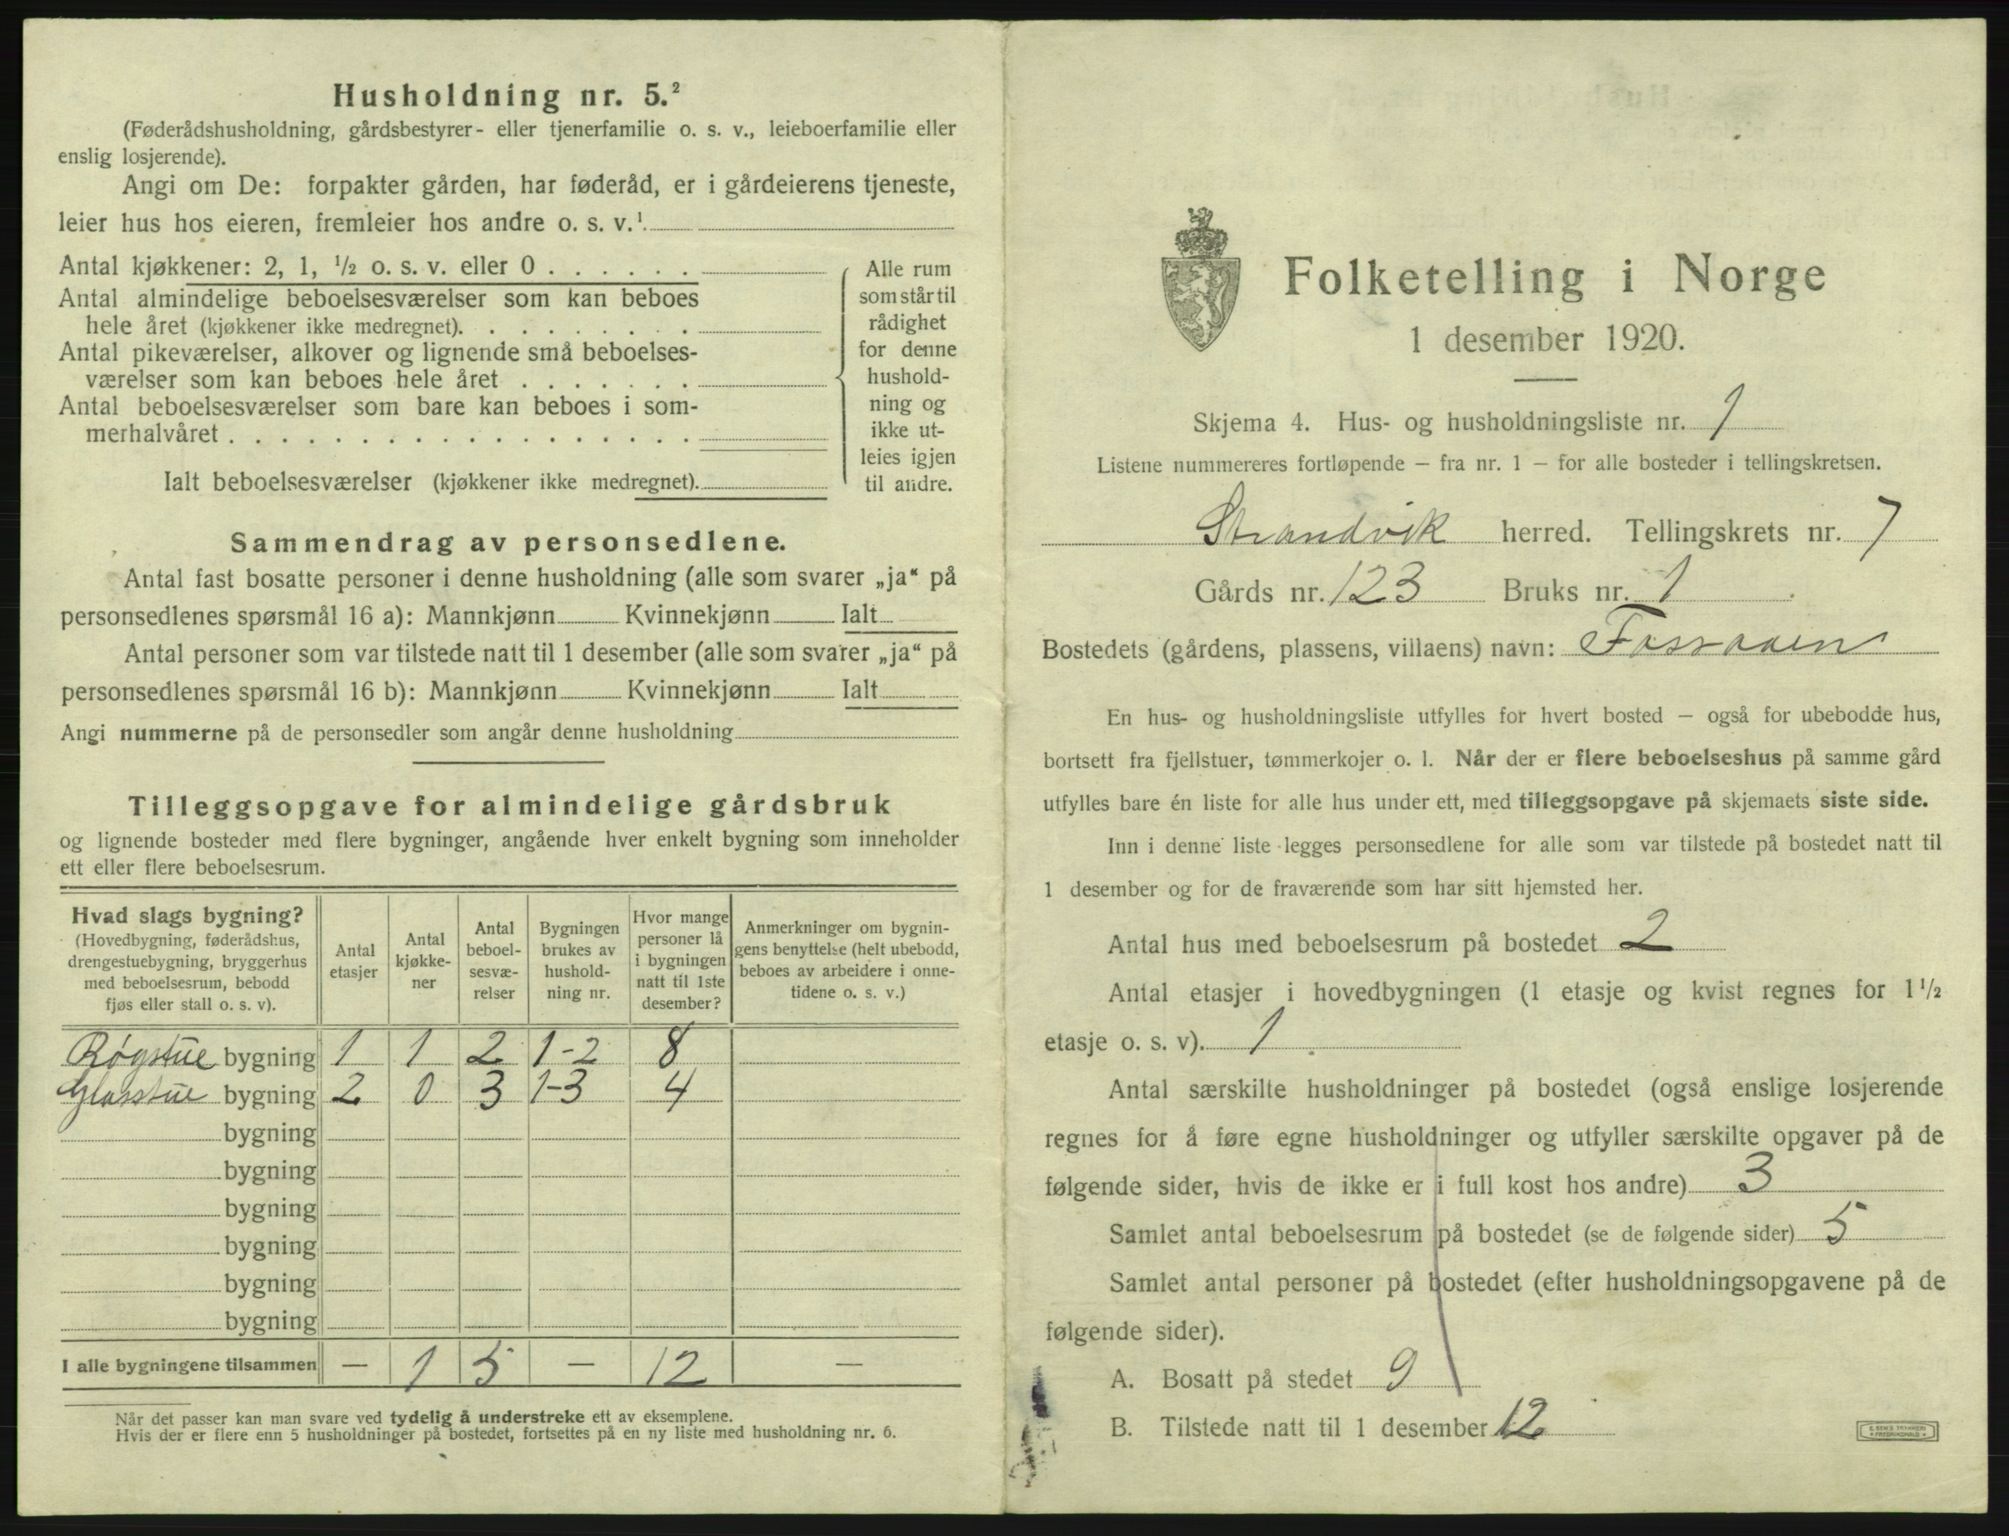 Husholdning nr. 5.²
(Føderådshusholdning, gårdsbestyrer- eller tjenerfamilie o. s. v., leieboerfamilie eller
enslig losjerende).
Angi om De: forpakter gården, har føderåd, er i gårdeierens tjeneste,
leier hus hos eieren, fremleier hos andre o. s. v.¹
Antal kjøkkener: 2, 1, ½ o. s. v. eller 0 . . . . . .
Antal almindelige beboelsesværelser som kan beboes
hele året (kjøkkener ikke medregnet). . . . . . . . .
Antal pikeværelser, alkover og lignende små beboelses-
værelser som kan beboes hele året . . . . . . .
Antal beboelsesværelser som bare kan beboes i som-
merhalvåret . . . . . . . . . . . . . . . . . .
Ialt beboelsesværelser (kjøkkener ikke medregnet).
Alle rum
som står til
rådighet
for denne
hushold-
ning og
ikke ut-
leies igjen
til andre.
Sammendrag av personsedlene.
Antal fast bosatte personer i denne husholdning (alle som svarer „ja“ på
personsedlenes spørsmål 16 a): Mannkjønn Kvinnekjønn Ialt
Antal personer som var tilstede natt til 1 desember (alle som svarer „ja“ på
personsedlenes spørsmål 16 b): Mannkjønn Kvinnekjønn Ialt
Angi nummerne på de personsedler som angår denne husholdning
Tilleggsopgave for almindelige gårdsbruk
og lignende bosteder med flere bygninger, angående hver enkelt bygning som inneholder
ett eller flere beboelsesrum.
Hvad slags bygning?
(Hovedbygning, føderådshus,
drengestuebygning, bryggerhus
med beboelsesrum, bebodd
fjøs eller stall o. s. v).
Antal
etasjer
Antal
kjøkke-
ner
Antal
beboel-
sesvæ-
relser
Bygningen
brukes av
hushold-
ning nr.
Hvor mange
personer lå
i bygningen
natt til 1ste
desember?
Anmerkninger om bygnin-
gens benyttelse (helt ubebodd,
beboes av arbeidere i onne-
tidene o. s. v.)
Røgstue bygning 1 1 2 1-2 8
Glasstue bygning 2 0 3 1-3 4
bygning
bygning
bygning
bygning
bygning
bygning
I alle bygningene tilsammen — 1 5 — 12 —
Når det passer kan man svare ved tydelig å understreke ett av eksemplene.
Hvis der er flere enn 5 husholdninger på bostedet, fortsettes på en ny liste med husholdning nr. 6.
Folketelling i Norge
1 desember 1920.
Skjema 4. Hus- og husholdningsliste nr. 1
Listene nummereres fortløpende – fra nr. 1 – for alle bosteder i tellingskretsen.
Strandvik herred. Tellingskrets nr. 7
Gårds nr. 123 Bruks nr. 1
Bostedets (gårdens, plassens, villaens) navn:
En hus- og husholdningsliste utfylles for hvert bosted – også for ubebodde hus,
bortsett fra fjellstuer, tømmerkojer o. l. Når der er flere beboelseshus på samme gård
utfylles bare én liste for alle hus under ett, med tilleggsopgave på skjemaets siste side.
Inn i denne liste legges personsedlene for alle som var tilstede på bostedet natt til
1 desember og for de fraværende som har sitt hjemsted her.
Antal hus med beboelsesrum på bostedet 2
Antal etasjer i hovedbygningen (1 etasje og kvist regnes for 1½
etasje o. s. v). 1
Antal særskilte husholdninger på bostedet (også enslige losjerende
regnes for å føre egne husholdninger og utfyller særskilte opgaver på de
følgende sider, hvis de ikke er i full kost hos andre) 3
Samlet antal beboelsesrum på bostedet (se de følgende sider) 5
Samlet antal personer på bostedet (efter husholdningsopgavene på de
følgende sider).
A. Bosatt på stedet 9
B. Tilstede natt til 1 desember 12